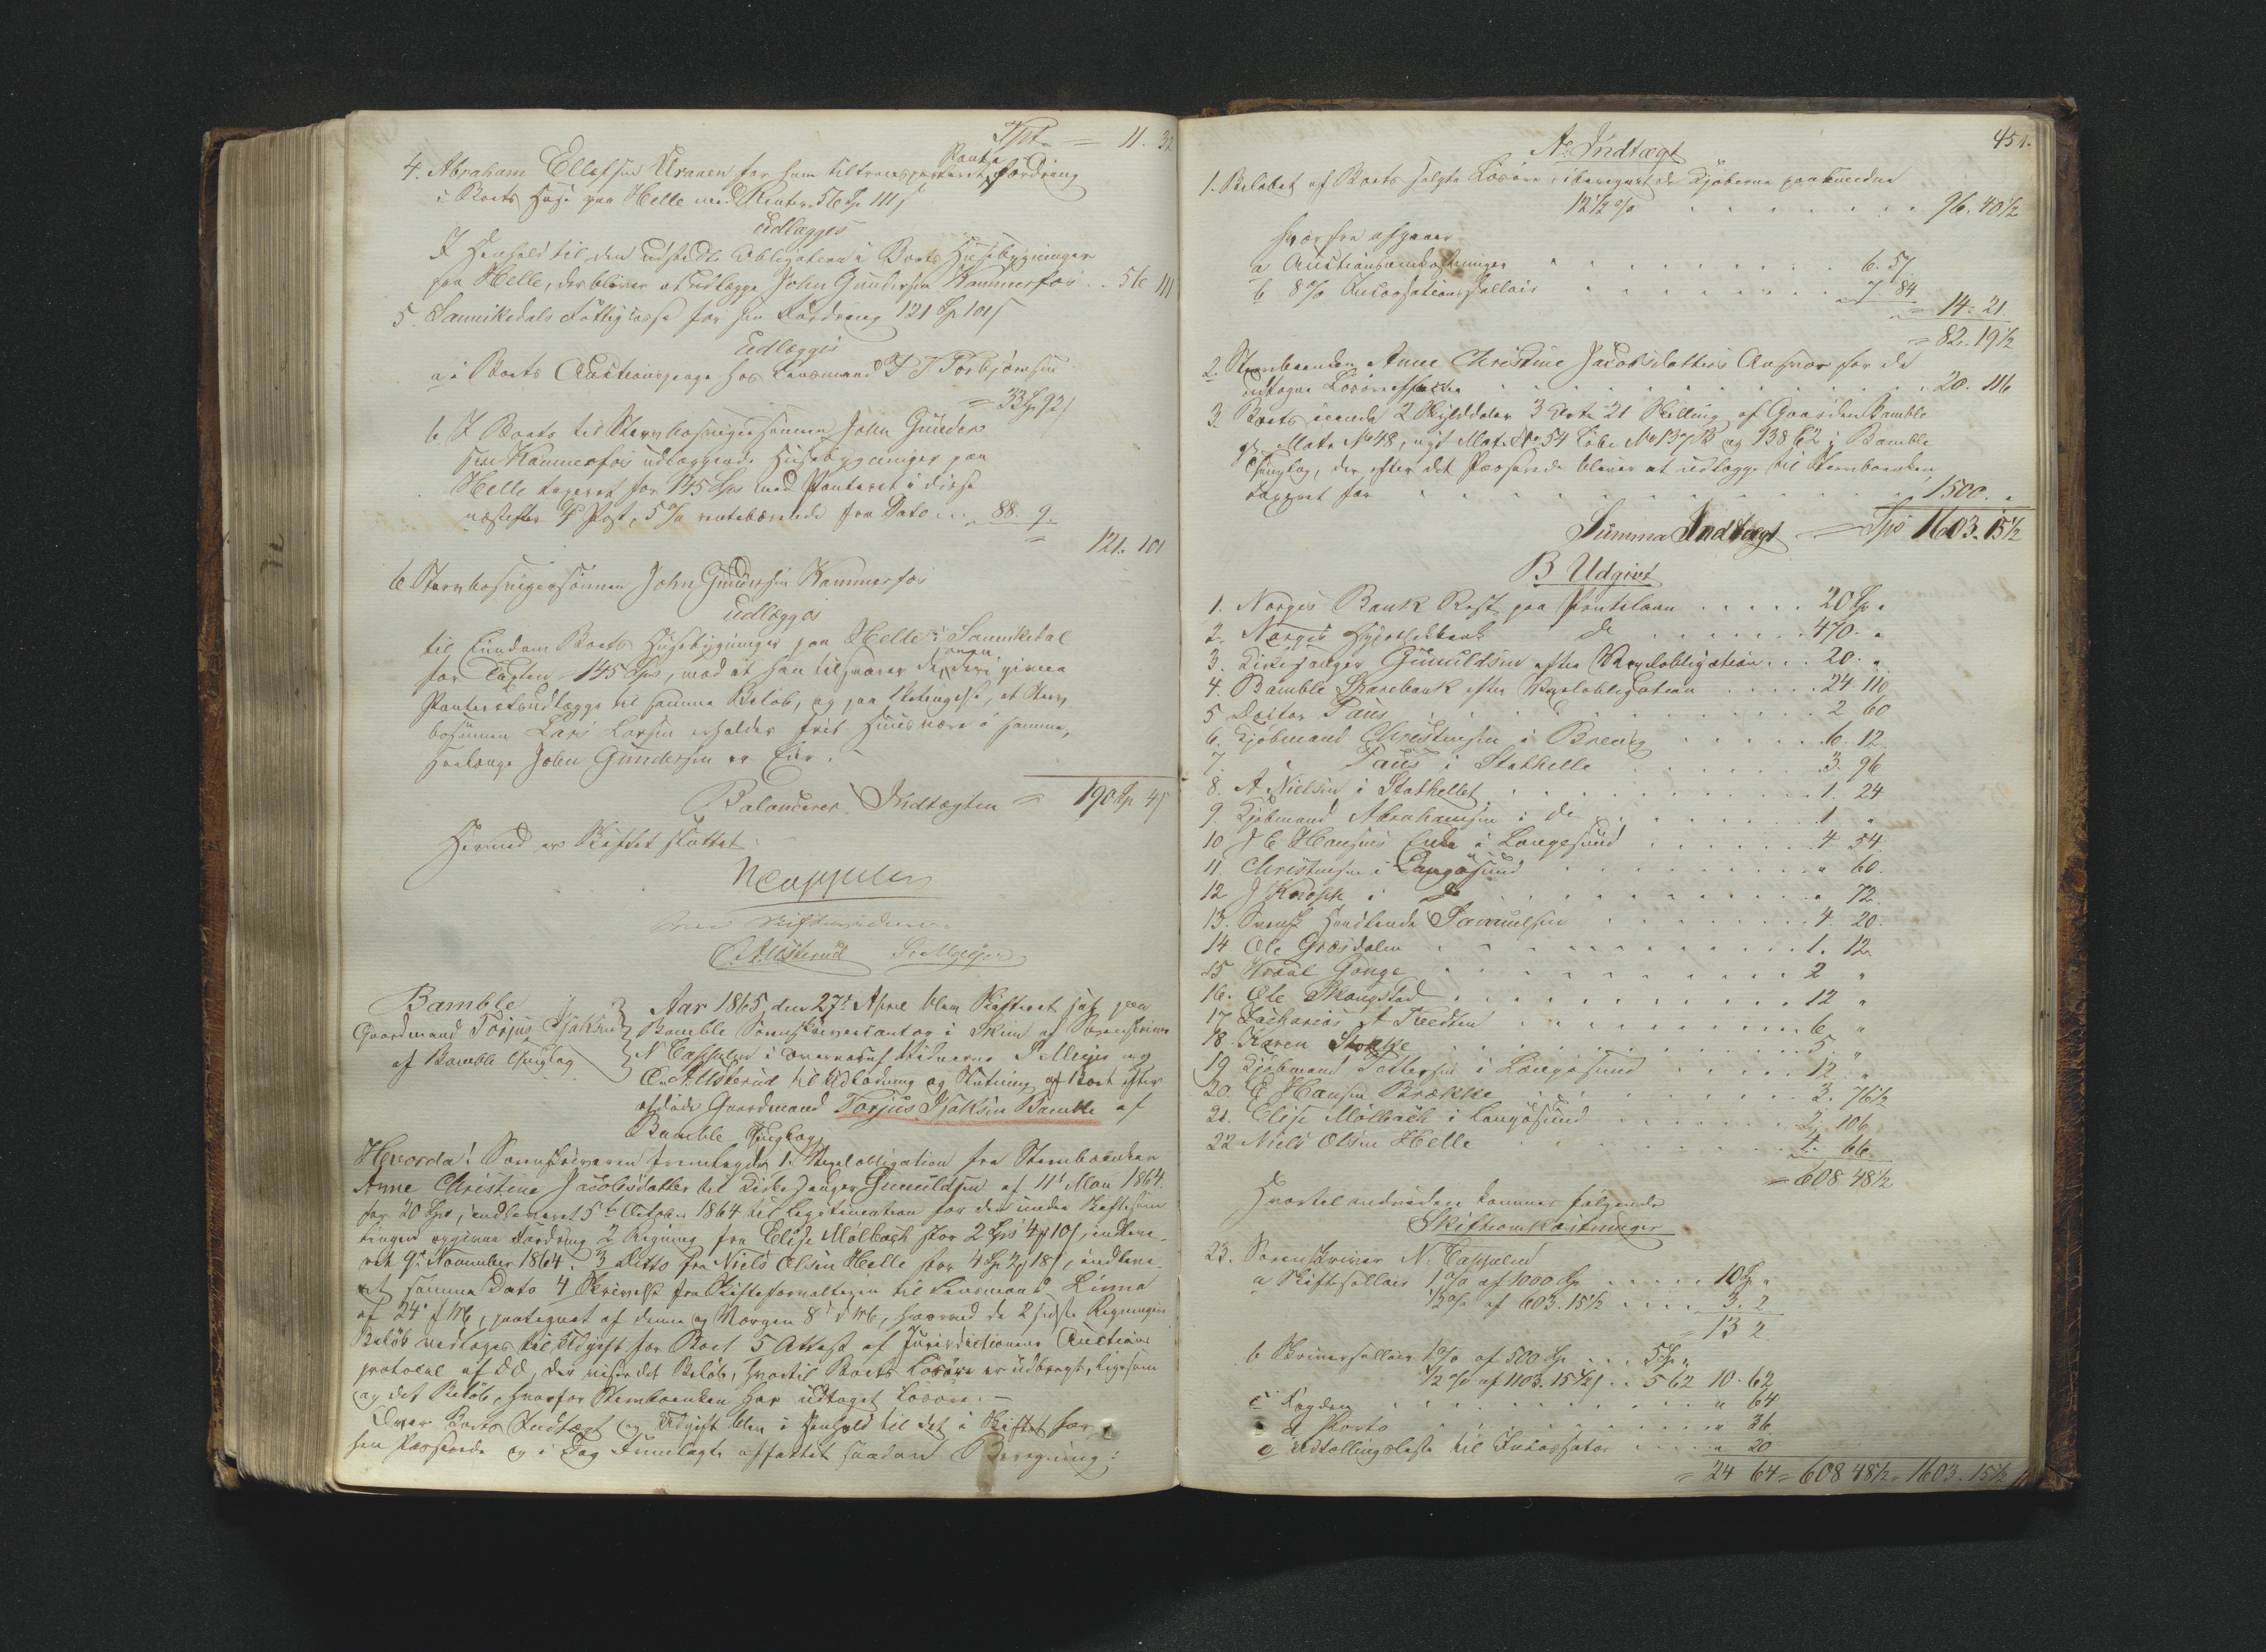 Tpt. = 11. 32
4. Abraham Ellefsen Uraaen for ham tiltransporteret Pante fordring
i Boets Huse paa Helle med Renter 56 Sp 111 s
udlægges
I Henhold til den udstedte Obligation i Boets Huusebygninger
paa Helle, der bliver at udlægge John Gundersen Kammerfos . . 56 111
5. Sannikedals Fattigcasse for sin Fordring 121 Sp 101 s
udlægges
a, i Boets Auctionspenge hos Lensmand T Torbjørnsen
= 33 Sp 92 s
b, I Boets til Stervbosvigersønnen John Gunder-
sen Kammerfos udlæggende Huusebygninger paa
Helle taxeret for 145 Spd med Panteret i disse
næstefter 4 Post, 5 % rentebærende fra Dato . . . 88. 9.
= 121. 101
6 Stervbosvigersønnen John Gundersen Kammerfos
udlægges
til Eiendom Boets Huusebygninger paa Helle i Sannikedal
for Taxten 145 Spd, mod at han tilsvarer de deri ovenn givne
Panteretsudlægge til samme Beløb, og paa Betingelse, at Sterv-
bosønnen Lars Larsen erholder frit Huusvære i samme,
saalænge John Gundersen er Eier.
Balancerer Indtægten = 190 Sp 4 s
Hermed er Skiftet sluttet.
NCappelen
som Skiftevidner.
C. A. Usterud P. Meyer
Bamble
Gaardmand Torjus Isaksen
af Bamble Thinglag
Aar 1865, den 27de April blev Skifteret sat paa
Bamble Sorenskrivercontor i Skien af Sorenskriver
N Cappelen i Overvær af Vidnerne P. Meyer og
C. A. Usterud til Udlodning og Slutning af Boet efter
afdøde Gaardmand Torjus Isaksen Bamble af
Bamble Thinglag.
Hvorda: Sorenskriveren fremlagde 1. Vexelobligation fra Stervboenken
Anne Christine Jacobsdatter til Kirkesanger Gunuldsen af 11te Mai 1864
for 20 Spd, indleveret 5te October 1864 til Legitimation for den under Skiftesam-
lingen opgivne Fordring 2 Regning fra Elise Mølbach stor 2 Spd 4 10 s, indleve-
ret 9de November 1864. 3 Ditto fra Niels Olsen Helle stor 4 Sp 2 18 s, indleve-
ret samme Dato 4 Skrivelse fra Skifteforvalteren til Lensmand Linna
af 24de f. M., paategnet af denne og Værgen 8de d. M., hvorved de 2 sidste Regningers
Beløb vedtages til Udgift for Boet 5 Attest af Jurisdictionens Auctions-
protocol af D D, der viser det Beløb, hvortil Boets Løsøre er udbragt, ligesom
og det Beløb, hvorfor Stervboenken har udtaget Løsøre. —
Over Boets Indtægt og Udgift blev i Henhold til det i Skiftet før
hen Passerede og i Dag Fremlagte affattet saadan Beregning:
451.
A. Indtægt
1. Beløbet af Boets solgte Løsøre iberegnet de Kjøberne paabudne
12 1/2 % . . . . . . . 96. 40 1/2
hvorfra afgaaer
a Auctionsomkostninger . . . . . . . . 6. 57
b 8 % Incassationssallair . . . . . . . 7 84
= 14. 21.
= 82. 19 1/2
2. Stervboenken Anne Christine Jacobsdatters Ansvar for de
udtagne Løsøreeffecter . . . . . . . . . . 20. 116
3. Boets eiende 2 Skylddaler 3 Ort 21 Skilling af Gaarden Bamble
gl. Matr No 48, nyt Matr. No 54 Løbe No 137 B og 138 b2 i Bamble
Thinglag, der efter det Passerede bliver at udlægge til Stervboenken,
taxeret for . . . . . . . . . . . . 1500. "
Summa Indtægt = Spd 1603. 15 1/2
B Udgivt
1. Norges Bank Rest paa Pantelaan . . . . . 20 Sp. "
2. Norges Hypothekbank do . . . . . . 470. "
3. Kirkesanger Gunuldsen efter Vexelobligation . . . 20. "
4. Bamble Sparebank efter Vexelobligation . . . . . 24. 110
5 Doctor Paus . . . . . . . . . . 2 60
6. Kjøbmand Christensen i Brevig . . . . . . 6. 12.
7. " Paus i Stathelle . . . . . . 3. 96
8. A Nielsen i Stathelle . . . . . . . . 1. 24
9. Kjøbmand Abrahamsen i do . . . . . . . 1 "
10 J E Hansens Enke i Langesund . . . . . . 4 54.
11. Christensen i Langøsund . . . . . . . . " 60.
12 J Knoph i do . . . . . . . . . . " 72.
13. Svensk Handlende Samuelsen . . . . . . . 4. 20.
14 Ole Grasdalen . . . . . . . . . . 1. 12.
15 Kraal Gonge . . . . . . . . . . 2 "
16. Ole Skougstad . . . . . . . . . . 12 "
17 Zacharias A Treedsen . . . . . . . . 6 "
18. Karen Stokke . . . . . . . . . . 5 "
19 Kjøbmand Pettersen i Langøsund . . . . . 12 "
20. E Hansen Brække . . . . . . . . 3. 76 1/2
21. Elise Mølbach i Langøsund . . . . . . . 2. 106
22 Niels Olsen Helle . . . . . . . . . 4. 66.
= 608 48 1/2
Hvortil endvidere kommer følgende
Skifteomkostninger
23. Sorenskriver N. Cappelen
a Skiftesallair 1 % af 1000 Sp . . . . . 10 Sp "
1/2 % af 603. 15 1/2 . . . . 3. 2
= 13 2
b Skriversallair 1 % af 500 Sp . . . 5 Sp "
1/2 % af 1103. 15 1/2 s . . 5 62 10. 62
c Fogden . . . . . . . . . . . " 64
d Porto . . . . . . . . . . . " 36.
e Udtællingsliste til Incassator . . . . . " 20
= 24 64 = 608 48 1/2 = 1603. 15 1/2